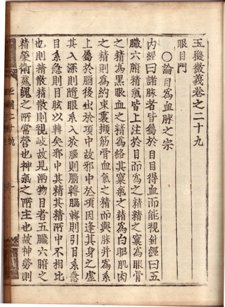 玉機微義卷之二十九
眼目門
〇論目為血脉之宗
內經曰諸脉者皆屬於目目得血而能視針經曰五
臟六腑精氣皆上注於目而為之精精之窠為眼骨
之精為黑眼血之精為絡其窠氣之精為白眼肌肉
之精則為約束裹擷筋骨血氣之精而與脉并為系
上屬於腦後出於項中故邪中於項因逢其身之虛
其入深則隨眼系入於腦則腦轉腦轉則引目系急
目系急則目眩以轉矣邪中其精其精所中不相比
也則精散精散則視岐故見兩物目者五臟六腑之
精榮衛魂魄之所常營也神氣之所主也故神勞則